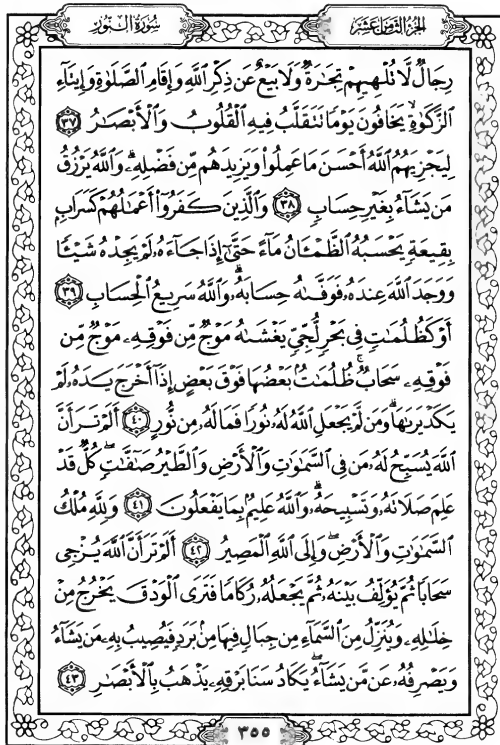 سُورَةُ النُّورِ
الجُزْءُ الثَّامِنَ عَشَرَ
رِجَالٌ لَّا تُلْهِيهِمْ تِجَٰرَةٌ وَلَا بَيْعٌ عَن ذِكْرِ ٱللَّهِ وَإِقَامِ ٱلصَّلَوٰةِ وَإِيتَآءِ
ٱلزَّكَوٰةِ يَخَافُونَ يَوْمًا تَتَقَلَّبُ فِيهِ ٱلْقُلُوبُ وَٱلْأَبْصَٰرُ ٣٧
لِيَجْزِيَهُمُ ٱللَّهُ أَحْسَنَ مَا عَمِلُوا۟ وَيَزِيدَهُم مِّن فَضْلِهِۦ وَٱللَّهُ يَرْزُقُ
مَن يَشَآءُ بِغَيْرِ حِسَابٍ ٣٨ وَٱلَّذِينَ كَفَرُوٓا۟ أَعْمَٰلُهُمْ كَسَرَابٍۭ
بِقِيعَةٍ يَحْسَبُهُ ٱلظَّمْـَٔانُ مَآءً حَتَّىٰٓ إِذَا جَآءَهُۥ لَمْ يَجِدْهُ شَيْـًٔا
وَوَجَدَ ٱللَّهَ عِندَهُۥ فَوَفَّىٰهُ حِسَابَهُۥ ۗ وَٱللَّهُ سَرِيعُ ٱلْحِسَابِ ٣٩
أَوْ كَظُلُمَٰتٍ فِى بَحْرٍ لُّجِّىٍّ يَغْشَىٰهُ مَوْجٌ مِّن فَوْقِهِۦ مَوْجٌ مِّن
فَوْقِهِۦ سَحَابٌ ۚ ظُلُمَٰتٌۢ بَعْضُهَا فَوْقَ بَعْضٍ إِذَآ أَخْرَجَ يَدَهُۥ لَمْ
يَكَدْ يَرَىٰهَا ۗ وَمَن لَّمْ يَجْعَلِ ٱللَّهُ لَهُۥ نُورًا فَمَا لَهُۥ مِن نُّورٍ ٤٠ أَلَمْ تَرَ أَنَّ
ٱللَّهَ يُسَبِّحُ لَهُۥ مَن فِى ٱلسَّمَٰوَٰتِ وَٱلْأَرْضِ وَٱلطَّيْرُ صَٰٓفَّٰتٍ ۖ كُلٌّ قَدْ
عَلِمَ صَلَاتَهُۥ وَتَسْبِيحَهُۥ ۗ وَٱللَّهُ عَلِيمٌۢ بِمَا يَفْعَلُونَ ٤١ وَلِلَّهِ مُلْكُ
ٱلسَّمَٰوَٰتِ وَٱلْأَرْضِ ۖ وَإِلَى ٱللَّهِ ٱلْمَصِيرُ ٤٢ أَلَمْ تَرَ أَنَّ ٱللَّهَ يُزْجِى
سَحَابًا ثُمَّ يُؤَلِّفُ بَيْنَهُۥ ثُمَّ يَجْعَلُهُۥ رُكَامًا فَتَرَى ٱلْوَدْقَ يَخْرُجُ مِنْ
خِلَٰلِهِۦ وَيُنَزِّلُ مِنَ ٱلسَّمَآءِ مِن جِبَالٍ فِيهَا مِنۢ بَرَدٍ فَيُصِيبُ بِهِۦ مَن يَشَآءُ
وَيَصْرِفُهُۥ عَن مَّن يَشَآءُ ۖ يَكَادُ سَنَا بَرْقِهِۦ يَذْهَبُ بِٱلْأَبْصَٰرِ ٤٣
٣٥٥